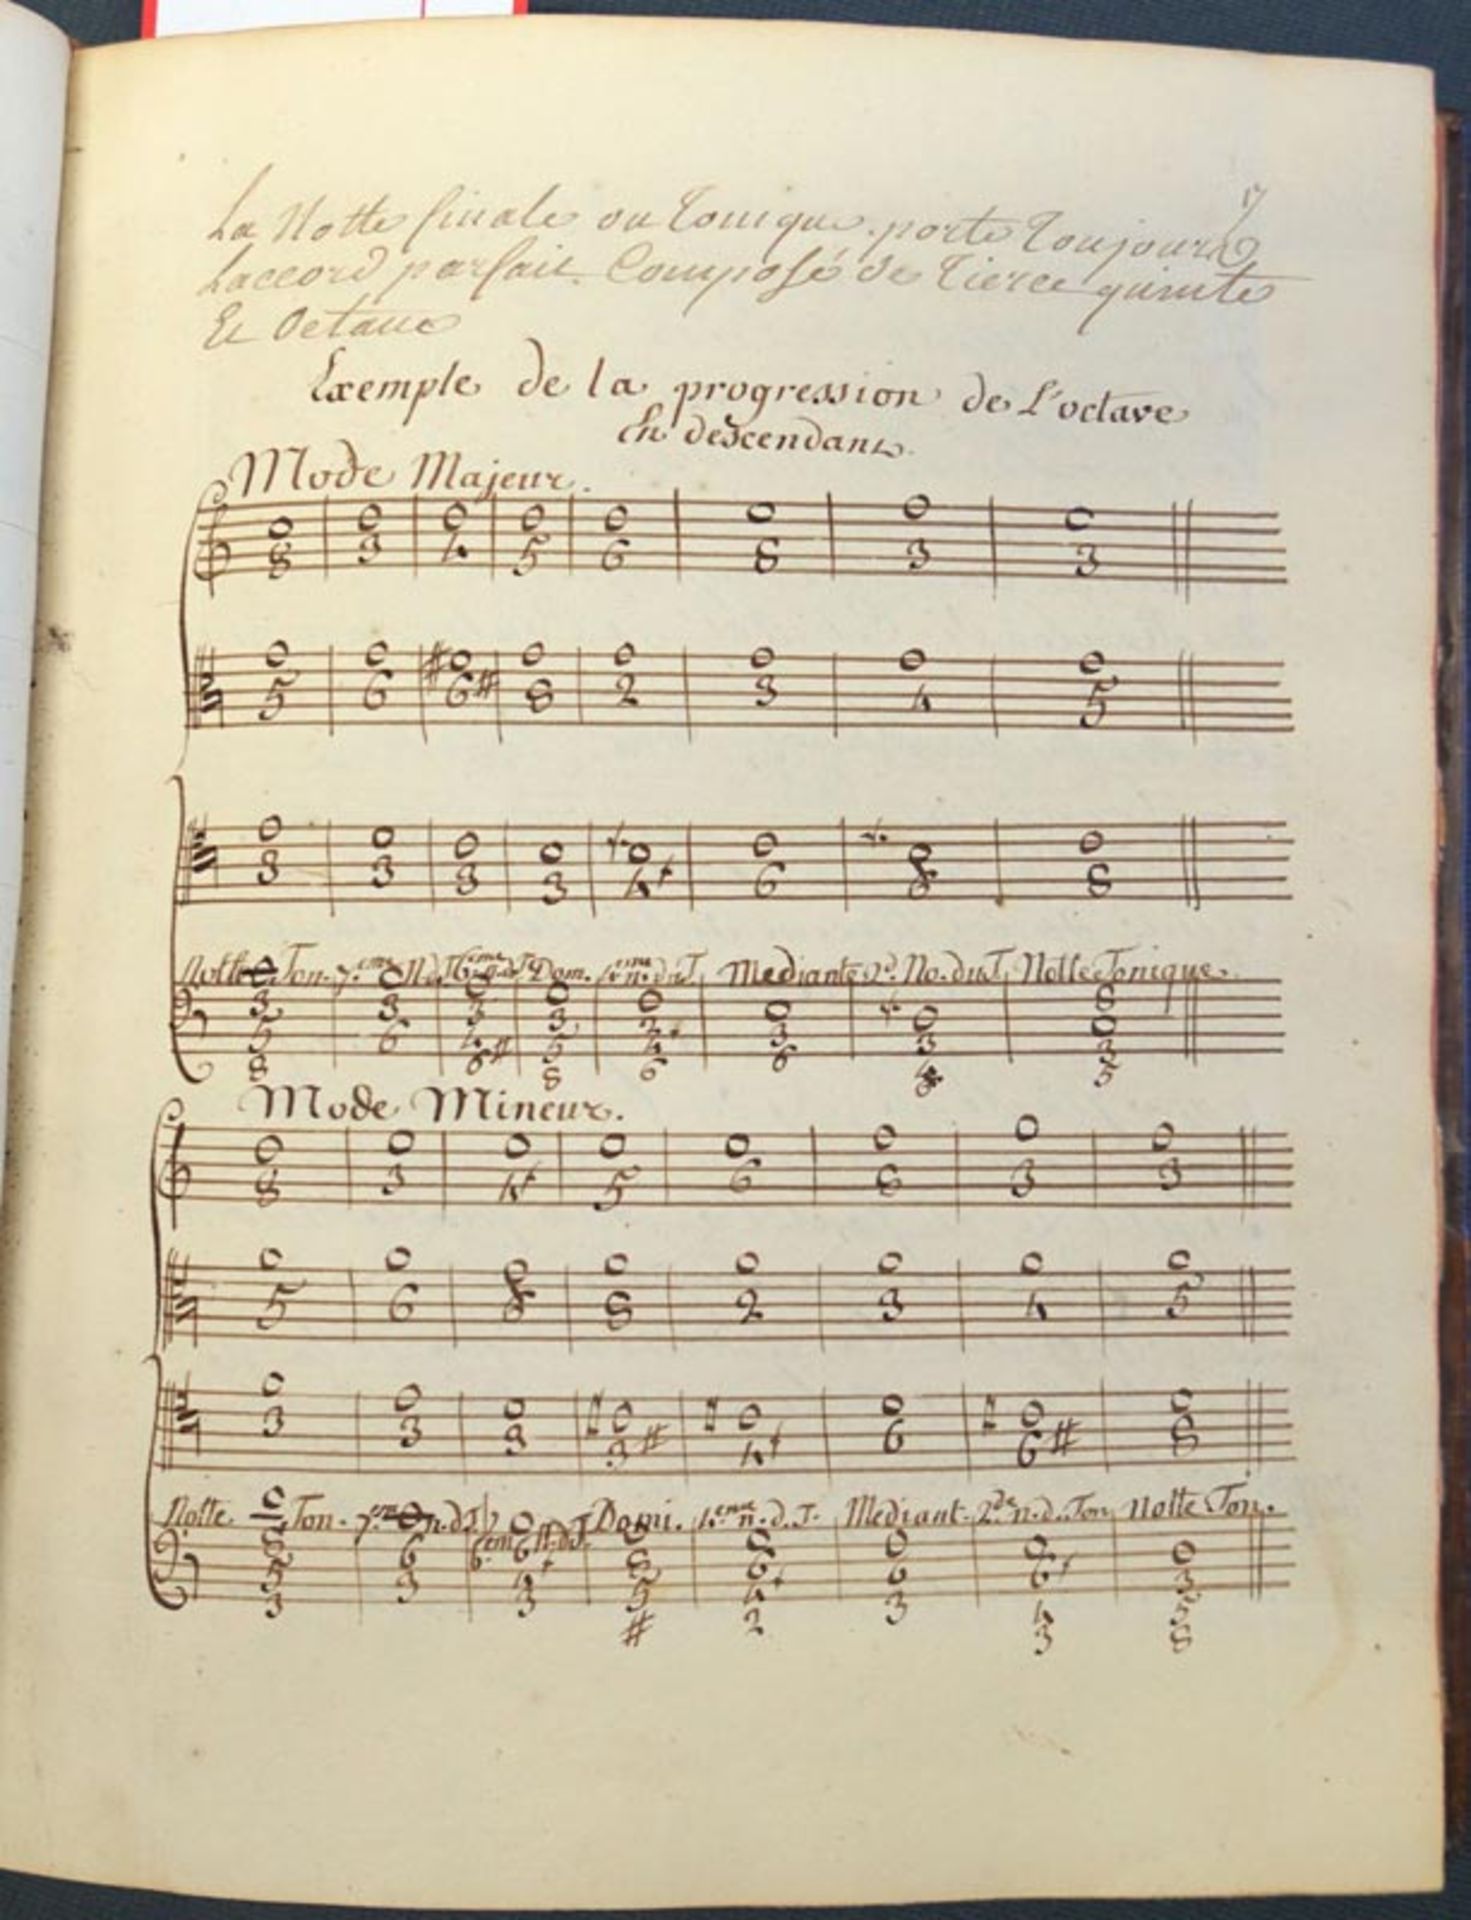 17
La Notte finale ou Tonique porte Toujours
Laccord parfait. Composé de Tierce quinte
Et Octave
Exemple de la progression de L'octave
En descendant.
Mode Majeur.
8 3 4 5 6 8 3 3
5 6 6# 8 2 3 4 5
3 3 3 3 4 6 6 8
Notte Ton. 7.eme N.d.T 6.eme n.d.T Dom. 4.eme n.d.T. Mediante 2.de No.du T. Notte Tonique.
3 3 3 3 2 3 3 8
5 6 4 5 4 6 4 3
8 6# 8 6 5
Mode Mineur.
8 3 4 5 6 8 3 3
5 6 6 8 2 3 4 5
3 3 3 3# 4 6 6# 8
Notte Ton. 7.eme n.d.T 6.em n.d.T. Domi. 4.eme n.d.T. Mediant. 2.de n.d.Ton Notte Ton.
8 6 6 8 6 6 6 3
5 3 4 5 4 3 4 5
3 3 # 2 3 8